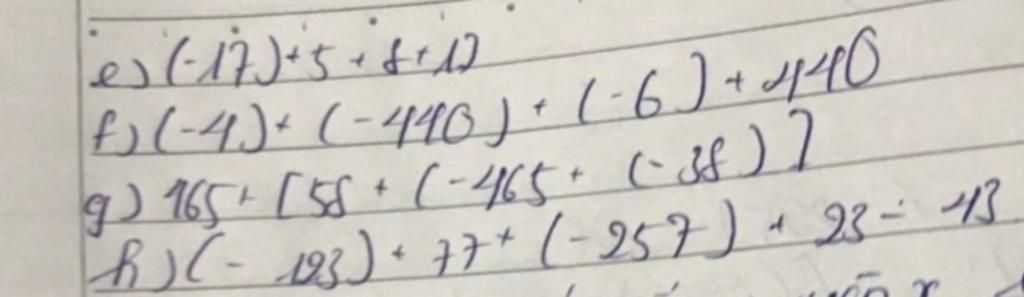 e) (-17) + 5 + 8 + 17
f) (-4) + (-440) + (-6) + 440
g) 465 + [58 + (-465 + (-38) ]
h) (- 123) + 77 + (-257) + 23 - 43